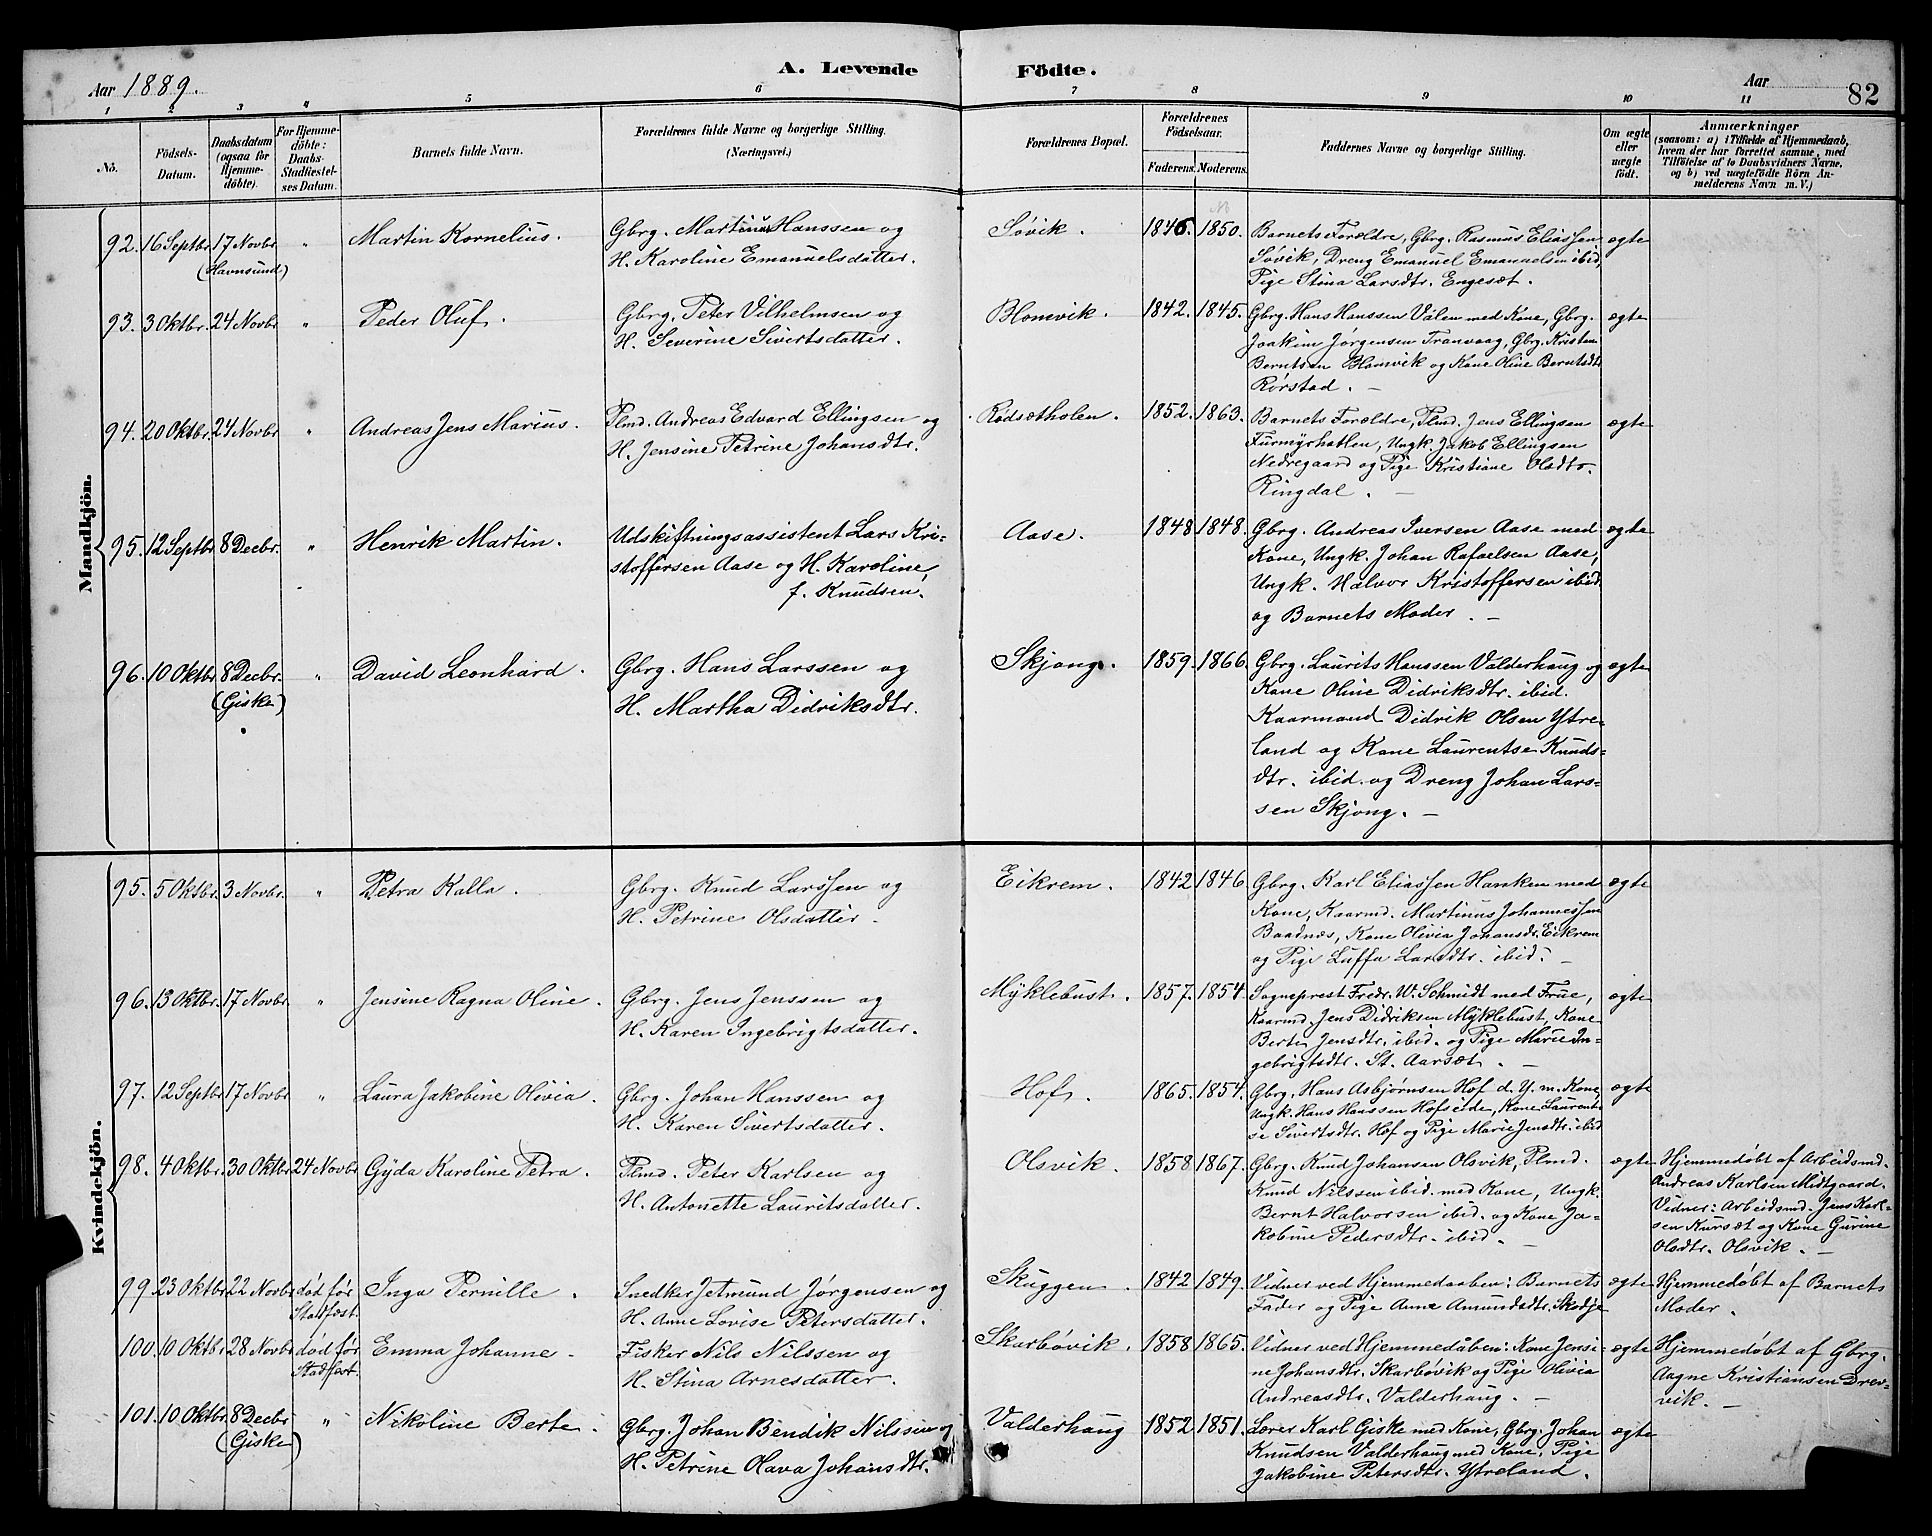 Aar 1889.
A. Levende Födte.
Aar
82
1 2 3 4 5 6 7 8 9 10 11
No.
Födsels-Datum.
Daabsdatum (ogsaa for Hjemme-döbte).
For Hjemme-döbte: Daabs-Stadfæstel-ses Datum.
Barnets fulde Navn.
Forældrenes fulde Navne og borgerlige Stilling. (Næringsvei.)
Forældrenes Bopæl.
Forældrenes Födselsaar.
Faderens. Moderens.
Faddernes Navne og borgerlige Stilling.
Om ægte eller uægte födt.
Anmærkninger
(saasom: a) i Tilfælde af Hjemmedaab, hvem der har forrettet samme, med Tilföielse af to Daabsvidners Navne, og b) ved uægtefödte Börn An-melderens Navn m. V.)
Mandkjön.
92. 16 Septbr. 17 Novbr. (Havnsund) " Martin Kornelius. Gbrg. Martinus Hanssen og
H. Karoline Emanuelsdatter.
Søvik. 1846. 1850. Barnets Forældre, Gbrg. Rasmus Eliassen
Søvik, Dreng Emanuel Emanuelsen ibid,
Pige Stina Larsdtr. Engesæt.
ægte
93. 3 Oktbr. 24 Novbr. " Peder Oluf. Gbrg. Peter Vilhelmsen og
H. Severine Sivertsdatter.
Blomvik. 1842. 1845. Gbrg. Hans Hanssen Valen med Kone, Gbrg.
Joakim Jørgensen Tranvaag, Gbrg. Kristen
Berntsen Blomvik og Kone Oline Berntsdtr.
Rørstad. —
ægte
94. 20 Oktbr. 24 Novbr. " Andreas Jens Marius. Plmd. Andreas Edvard Ellingsen og
H. Jensine Petrine Johansdtr.
Rødsætholen. 1852. 1863. Barnets Forældre, Plmd. Jens Ellingsen
Furmyrhatlen, Ungk. Jakob Ellingsen
Nedregaard og Pige Kristiane Olsdtr.
Ringdal. —
ægte
95. 12 Septbr. 8 Decbr. " Henrik Martin. Udskiftningsassistent Lars Kri-
stoffersen Aase og H. Karoline,
f. Knudsen.
Aase. 1848 1848. Gbrg. Andreas Iversen Aase med
Kone, Ungk. Johan Rafaelsen Aase,
Ungk. Halvor Kristoffersen ibid
og Barnets Moder. —
ægte
96. 10 Oktbr. 8 Decbr. (Giske) " David Leonhard. Gbrg. Hans Larssen og
H. Martha Didriksdtr.
Skjong. 1859. 1866. Gbrg. Laurits Hanssen Valderhaug og
Kone Oline Didriksdtr. ibid.
Kaarmand Didrik Olsen Ytre-
land og Kone Laurentse Knuds-
dtr. ibid. og Dreng Johan Lars-
sen Skjong. —
ægte
Kvindekjön.
95. 5 Oktbr. 3 Novbr. " Petra Kalla. Gbrg. Knud Larssen og
H. Petrine Olsdatter.
Eikrem. 1842 1846 Gbrg. Karl Eliassen Hamken med
Kone, Kaarmd. Martinus Johannessen
Baadnæs, Kone Olivia Johansdtr. Eikrem
og Pige Luffa Larsdtr. ibid. —
ægte
96. 13 Oktbr. 17 Novbr. " Jensine Ragna Oline. Gbrg. Jens Jenssen og
H. Karen Ingebrigtsdatter.
Myklebust. 1857. 1854. Sogneprest Fredr. W. Schmidt med Frue,
Kaarmd. Jens Didriksen Myklebust, Kone
Berte Jensdtr. ibid. og Pige Marie In-
gebrigtsdtr. St. Aarsæt. —
ægte
97. 12 Septbr. 17 Novbr. " Laura Jakobine Olivia. Gbrg. Johan Hanssen og
H. Karen Sivertsdatter.
Hof. 1865. 1854. Gbrg. Hans Asbjørnsen Hof d. Y. m. Kone,
Ungk. Hans Hanssen Hofseide, Kone Laurent-
se Sivertsdtr. Hof og Pige Marie Jensdtr. ibid
ægte
98. 4 Oktbr. 30 Oktbr. 24 Novbr. Gyda Karoline Petra. Plmd. Peter Karlsen og
H. Antonette Lauritsdatter.
Olsvik. 1858 1867. Gbrg. Knud Johansen Olsvik, Plmd.
Knud Nilssen ibid. med Kone, Ungk.
Bernt Halvorsen ibid. og Kone Ja-
kobine Pedersdtr. ibid. —
ægte Hjemmedøbt af Arbeidsmd.
Andreas Karlsen Midtgaard.
Vidner: Arbeidsmd. Jens Karl-
sen Kursæt og Kone Gurine
Olsdtr. Olsvik. —
99. 23 Oktbr. 22 Novbr. død før Stadfæst. Inga Pernille. Snedker Jetmund Jørgensen og
H. Anne Lovise Petersdatter.
Skuggen. 1842 1849. Vidner ved Hjemmedaaben: Barnets
Fader og Pige Anne Amundsdtr. Skodje
ægte Hjemmedøbt af Barnets
Moder.
100. 10 Oktbr. 28 Novbr. død før Stadfæst. Emma Johanne. Fisker Nils Nilssen og
H. Stina Arnesdatter.
Skarbøvik. 1858 1865. Vidner ved Hjemmedåben: Kone Jensi-
ne Johansdtr. Skarbøvik og Pige Olivia
Andreasdtr. Valderhaug. —
ægte Hjemmedøbt af Gbrg.
Aagne Kristiansen Drev-
vik. —
101. 10 Oktbr. 8 Decbr (Giske) " Nikoline Berte. Gbrg. Johan Bendik Nilssen og
H. Petrine Olava Johansdtr.
Valderhaug 1852 1851. Lærer Karl Giske med Kone, Gbrg. Johan
Knudsen Valderhaug med Kone, Pige
Jakobine Petersdtr. Ytreland.
ægte